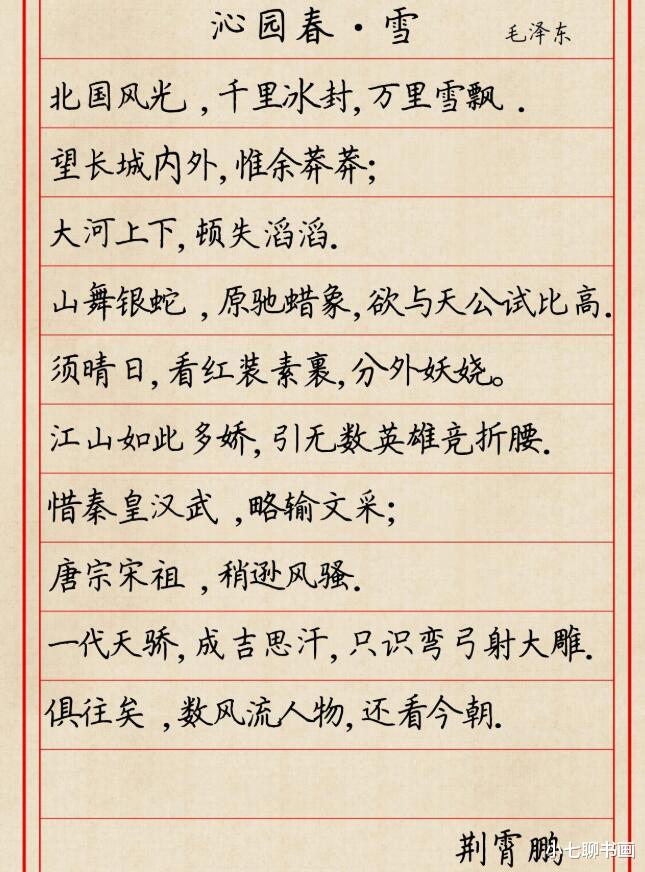 沁园春·雪 毛泽东
北国风光,千里冰封,万里雪飘.
望长城内外,惟余莽莽;
大河上下,顿失滔滔.
山舞银蛇,原驰蜡象,欲与天公试比高.
须晴日,看红装素裹,分外妖娆。
江山如此多娇,引无数英雄竞折腰.
惜秦皇汉武,略输文采;
唐宗宋祖,稍逊风骚.
一代天骄,成吉思汗,只识弯弓射大雕.
俱往矣,数风流人物,还看今朝.
荆霄鹏
小七聊书画